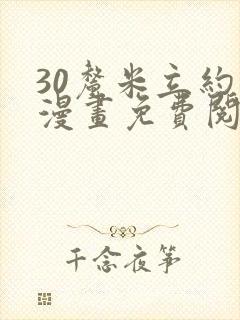 30釐米立約
漫畫免費閱
千念夜箏